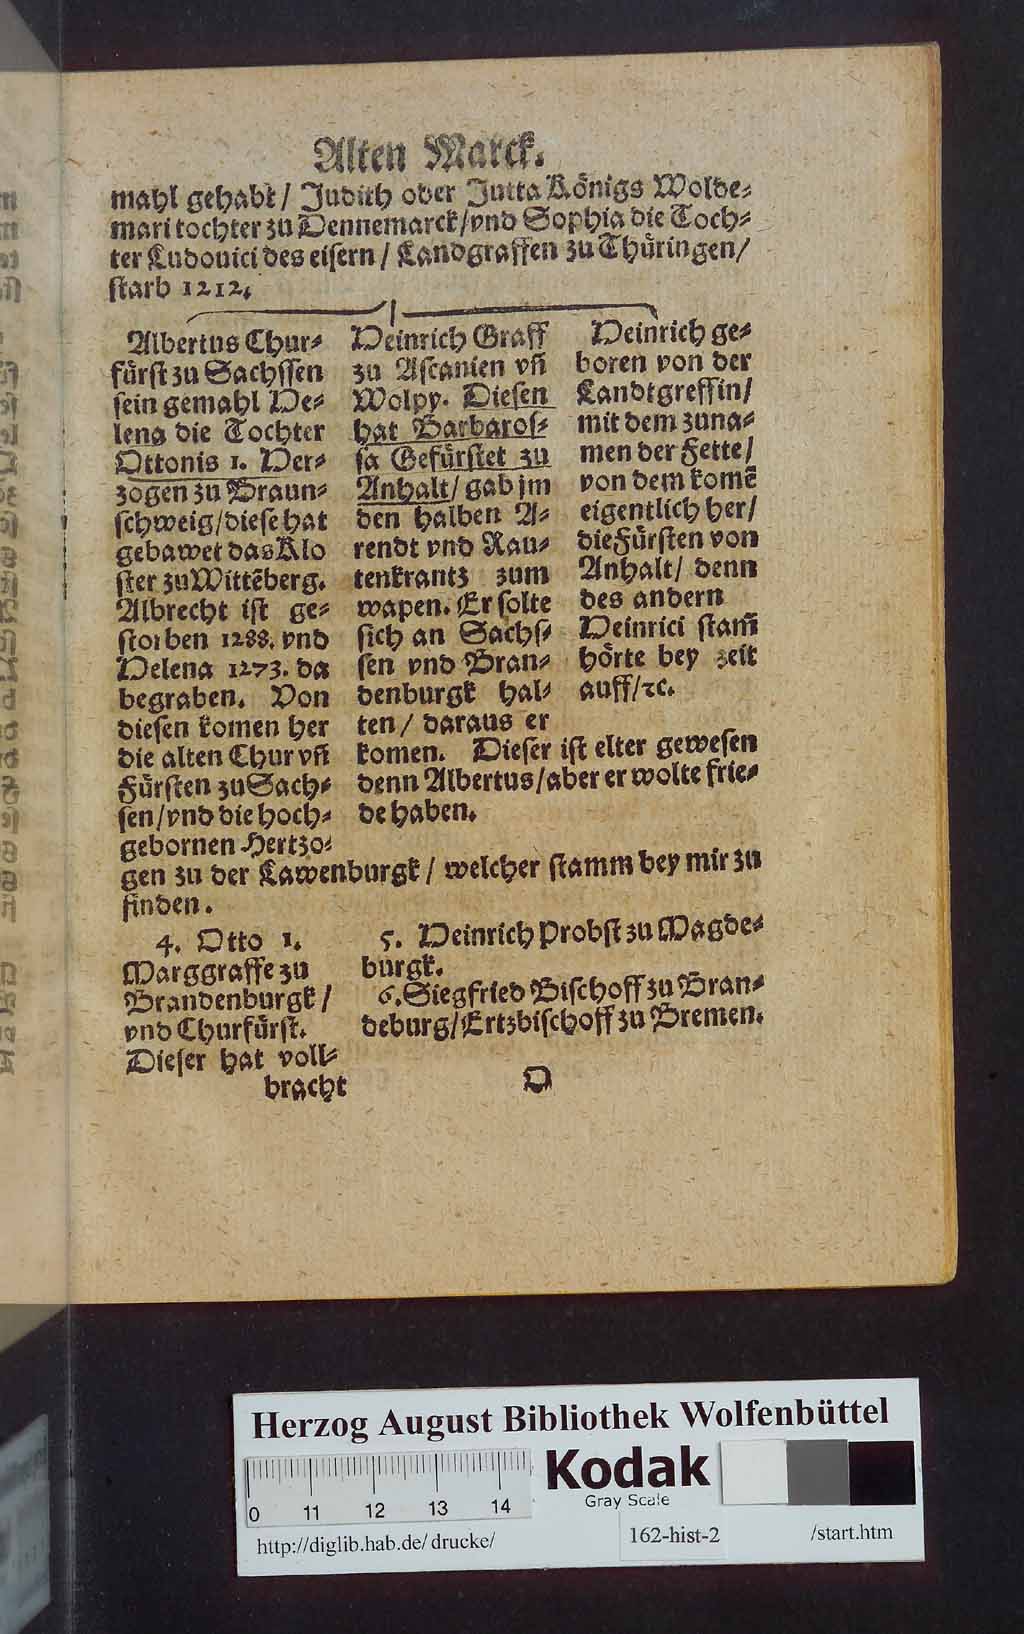 Alten Marck.
mahl gehabt / Judith oder Jutta Königs Wolde⸗
mari tochter zu Dennemarck/vnd Sophia die Toch⸗
ter Ludouici des eisern / Landgraffen zu Thüringen/
starb 1212.
Albertus Chur⸗
fürst zu Sachssen
sein gemahl He⸗
lena die Tochter
Ottonis 1. Her⸗
zogen zu Braun⸗
schweig/diese hat
gebawet das Klo
ster zu Wittēberg.
Albrecht ist ge⸗
storben 1288. vnd
Helena 1273. da
begraben. Von
diesen komen her
die alten Chur vñ
Fürsten zu Sach⸗
sen/vnd die hoch⸗
gebornen Hertzo⸗
Heinrich Graff
zu Ascanien vñ
Wolpy. Diesen
hat Barbaros⸗
sa Gefürstet zu
Anhalt/ gab jm
den halben A⸗
rendt vnd Rau⸗
tenkrantz zum
wapen. Er solte
sich an Sachs⸗
sen vnd Bran⸗
denburgk hal⸗
ten/ daraus er
komen. Dieser ist elter gewesen
denn Albertus/aber er wolte frie⸗
de haben.
Heinrich ge⸗
boren von der
Landtgreffin/
mit dem zuna⸗
men der Fette/
von dem komē
eigentlich her/
die Fürsten von
Anhalt/ denn
des andern
Heinrici stam̃
hörte bey zeit
auff/ꝛc.
gen zu der Lawenburgk / welcher stamm bey mir zu
finden.
4. Otto 1.
Marggraffe zu
Brandenburgk /
vnd Churfürst.
Dieser hat voll⸗
bracht
5. Heinrich Probst zu Magde⸗
burgk.
6. Siegfried Bischoff zu Bran⸗
deburg/Ertzbischoff zu Bremen.
D
Herzog August Bibliothek Wolfenbüttel
Kodak
Gray Scale
0 11 12 13 14
http://diglib.hab.de/drucke/ 162-hist-2 /start.htm